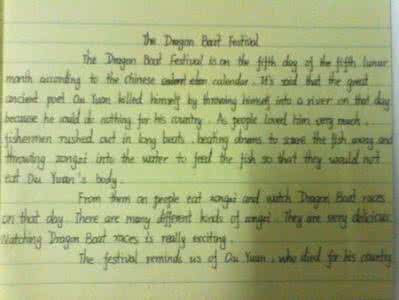 The Dragon Boat Festival
The Dragon Boat Festival is on the fifth day of the fifth lunar
month according to the Chinese calendar. It's said that the great
ancient poet Qu Yuan killed himself by throwing himself into a river on that day
because he could do nothing for his country. As people loved him very much,
fishermen rushed out in long boats, beating drums to scare the fish away and
throwing zongzi into the water to feed the fish so that they would not
eat Qu Yuan's body.
From them on people eat zongzi and watch Dragon Boat races
on that day. There are many different kinds of zongzi. They are very delicious.
Watching Dragon Boat races is really exciting.
The festival reminds us of Qu Yuan, who died for his country